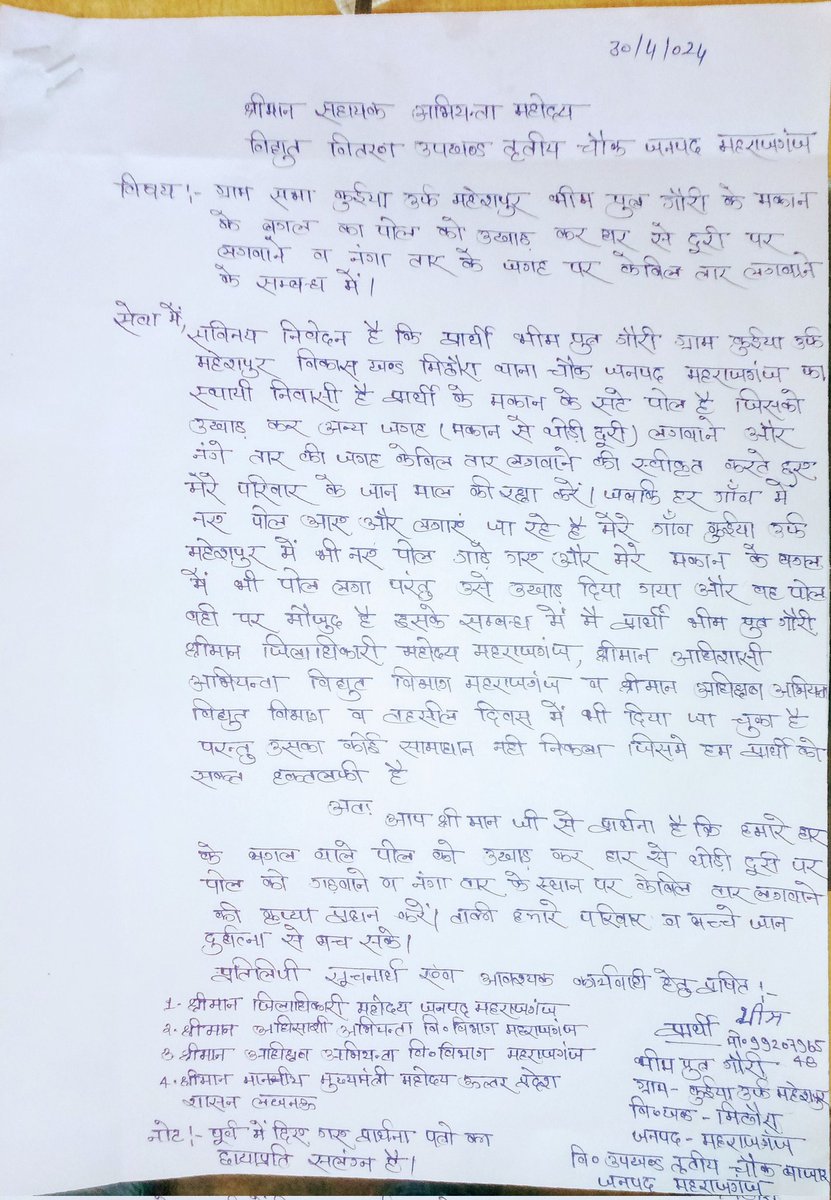 30/4/024
श्रीमान सहायक अभियन्ता महोदय
विद्युत वितरण उपखण्ड तृतीय चौक जनपद महराजगंज
विषय :- ग्राम सभा कुईया उर्फ महेशपुर भीम पुत्र गौरी के मकान
के बगल का पोल को उखाड़ कर घर से दुरी पर
लगवाने व नंगा तार के जगह पर केबिल तार लगवाने
के सम्बन्ध में।
सेवा में,
सविनय निवेदन है कि प्रार्थी भीम पुत्र गौरी ग्राम कुईया उर्फ
महेशपुर विकास खण्ड मिठौरा थाना चौक जनपद महराजगंज का
स्थायी निवासी है प्रार्थी के मकान के सटे पोल है जिसको
उखाड़ कर अन्य जगह (मकान से थोड़ी दूरी) लगवाने और
नंगे तार की जगह केबिल तार लगवाने की स्वीकृत करते हुए
मेरे परिवार के जान माल की रक्षा करें। जबकि हर गाँव में
नए पोल आए और लगाएं जा रहे है मेरे गाँव कुईया उर्फ
महेशपुर में भी नएं पोल गाड़े गए और मेरे मकान के बगल
में भी पोल लगा परंतु उसे उखाड़ दिया गया और वह पोल
वही पर मौजुद है इसके सम्बन्ध में मै प्रार्थी भीम पुत गौरी
श्रीमान जिलाधिकारी महोदय महराजगंज, श्रीमान अधिशासी
अभियन्ता विद्युत विभाग महराजगंज व श्रीमान अधिक्षण अभियन्ता
विद्युत विभाग व तहसील दिवस में भी दिया जा चुका है
परन्तु उसका कोई सामाधान नही निकला जिसमे हम प्रार्थी को
सक्त हकतलफी है
अतः
आप श्री मान जी से प्रार्थना है कि हमारे घर
के बगल वाले पोल को उखाड़ कर घर से थोड़ी दुरी पर
पोल को गड़वाने व नंगा तार के स्थान पर केबिल तार लगवाने
की कृप्या प्रदान करें। ताकी हमारे परिवार व बच्चे जान
दुर्घटना से बच सके।
प्रतिलिपी सूचनार्थ एवंम आवश्यक कार्यवाही हेतु प्रेषित :-
1- श्रीमान जिलाधिकारी महोदय जनपद महराजगंज
2- श्रीमान अधिसाशी अभियन्ता वि० विभाग महराजगंज
3- श्रीमान अधिक्षण अभियन्ता वि० विभाग महराजगंज
4- श्रीमान माननीय मुख्यमंत्री महोदय ऊत्तर प्रदेश
शासन लखनऊ
नोट :- पूर्व में दिए गए प्रार्थना पत्रो का
छायाप्रति सलंग्न है।
भीम
प्रार्थी
मो० 99207965
48
भीम पुत गौरी
ग्राम - कुईया उर्फ महेशपुर
वि० खंड - मिठौरा
जनपद - महराजगंज
वि० उपखंड तृतीय चौक बाजार
जनपद महराजगंज